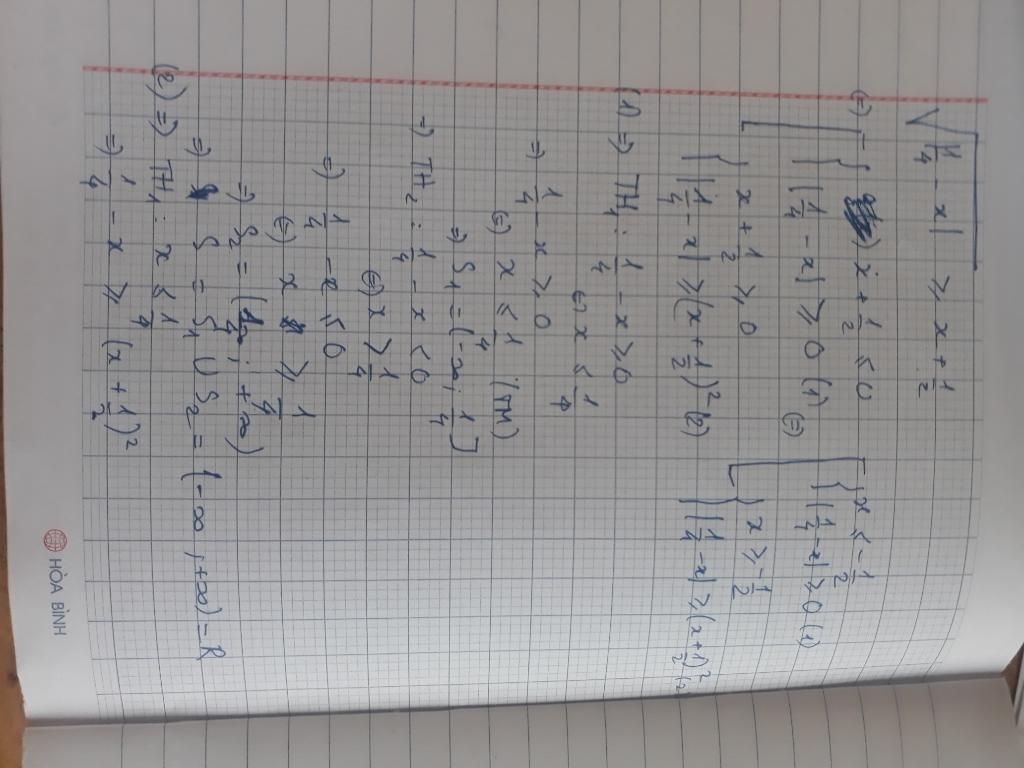 √|1/4 - x| ≥ x + 1/2
(=) { x + 1/2 ≤ 0
{ |1/4 - x| ≥ 0 (1)
{ x + 1/2 ≥ 0
{ |1/4 - x| ≥ (x + 1/2)² (2)
(=) { x ≤ -1/2
{ |1/4 - x| ≥ 0 (1)
{ x ≥ -1/2
{ |1/4 - x| ≥ (x + 1/2)² (2)
(1) => TH1: 1/4 - x ≥ 0
(=) x ≤ 1/4
=> 1/4 - x ≥ 0
(=) x ≤ 1/4 (TM)
=> S1 = (-∞; 1/4]
=) TH2: 1/4 - x < 0
(=) x > 1/4
=) 1/4 - x ≤ 0
(=) x ≥ 1/4
=) S2 = (1/4; +∞)
=) S = S1 ∪ S2 = (-∞; +∞) = R
(2) => TH1: x ≤ 1/4
=) 1/4 - x ≥ (x + 1/2)²
HÒA BÌNH